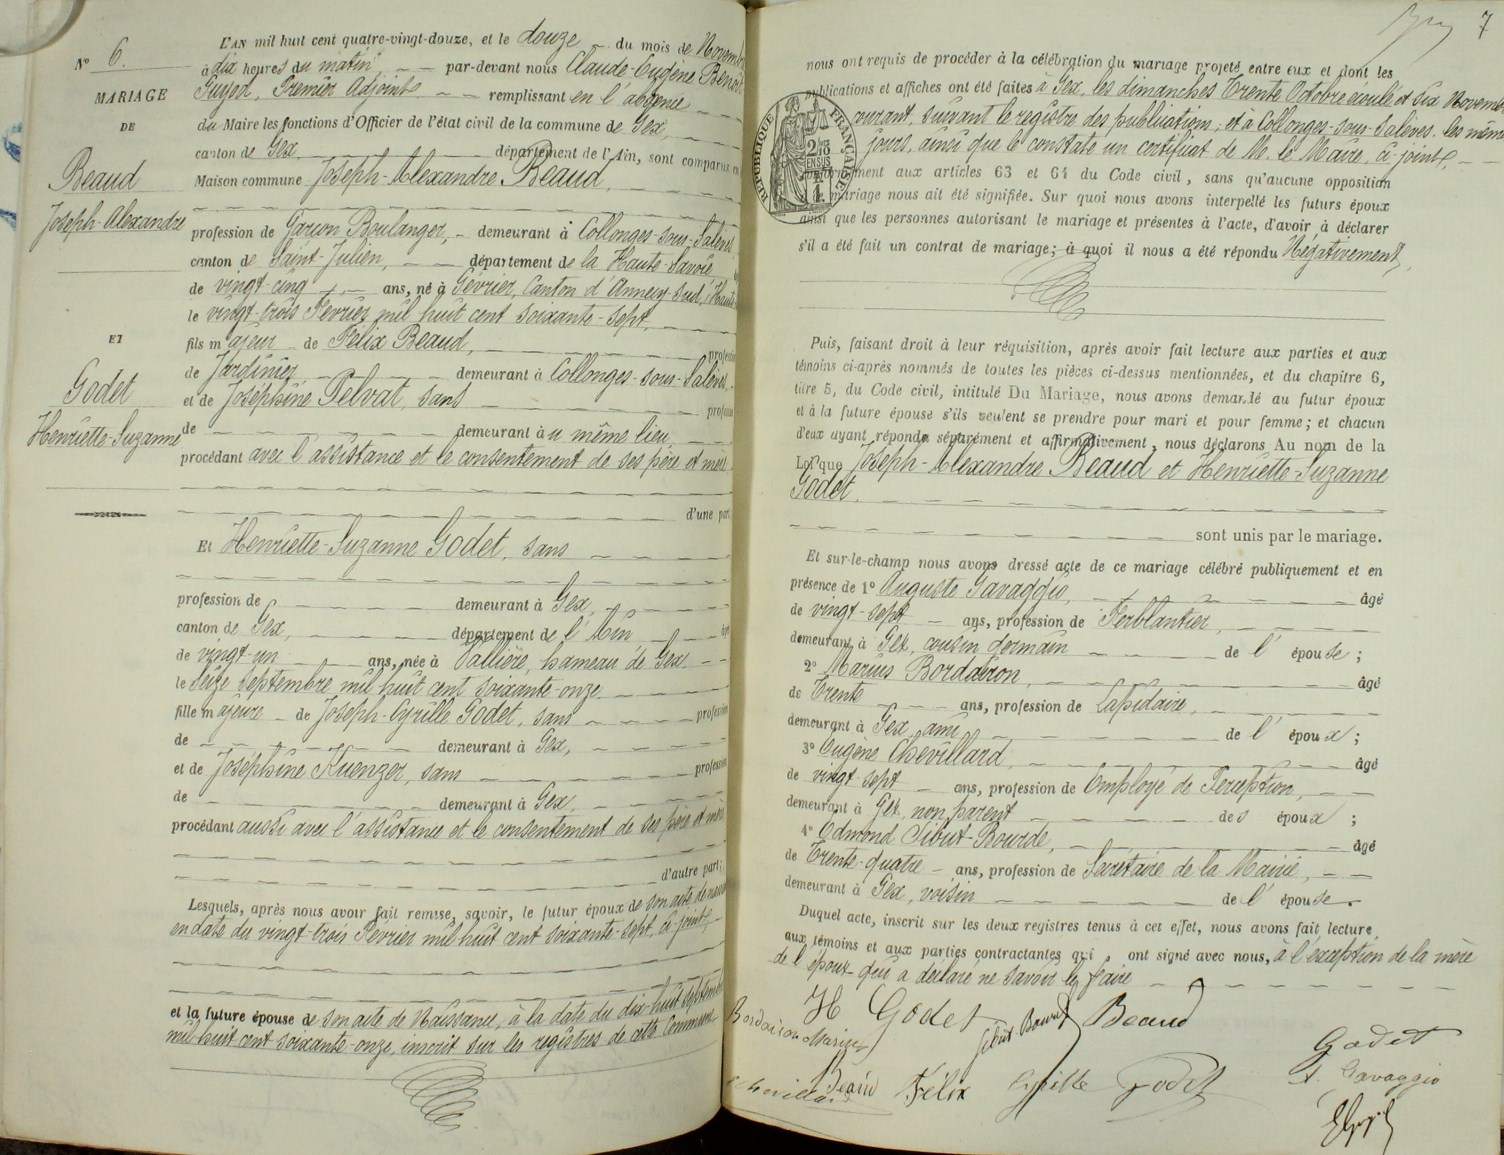 7
N° 6.
MARIAGE
DE
Beaud
Joseph-Alexandre
ET
Godet
Henriette-Suzanne
L'AN mil huit cent quatre-vingt-douze, et le douze du mois de Novembre
à dix heures du matin par-devant nous Claude-Eugène Benoit
Premier Adjoint remplissant en l'absence
du Maire les fonctions d'Officier de l'état civil de la commune de Gex
canton de Gex département de l'Ain, sont comparus en
Maison commune Joseph-Alexandre Beaud,
profession de Garçon Boulanger, demeurant à Collonges-sous-Salèves,
canton de Saint-Julien, département de la Haute-Savoie
de vingt cinq ans, né à Sévrier, Canton d'Annecy-Sud, (Haute
le vingt-trois Février mil huit cent soixante-sept,
fils majeur de Félix Beaud, profession
de Jardinier demeurant à Collonges-sous-Salèves,
et de Joséphine Pelvat, sans profession
de demeurant au même lieu,
procédant avec l'assistance et le consentement de ses père et mère
d'une part
Et Henriette-Suzanne Godet, sans
profession de demeurant à Gex,
canton de Gex, département de l'Ain
de vingt-un ans, née à Vallière, hameau de Gex
le seize Septembre mil huit cent soixante-onze
fille majeure de Joseph-Cyrille Godet, sans profession
de demeurant à Gex,
et de Joséphine Kuenzer, sans profession
de demeurant à Gex,
procédant aussi avec l'assistance et le consentement de ses père et mère
d'autre part;
Lesquels, après nous avoir fait remise, savoir, le futur époux de son acte de
en date du vingt-trois Février mil huit cent soixante-sept, ci-joint,
et la future épouse de son acte de Naissance, à la date du dix-huit septembre
mil-huit cent-soixante-onze, inscrit sur les registres de cette Commune
nous ont requis de procéder à la célébration du mariage projeté entre eux et dont les
publications et affiches ont été faites à Gex, les dimanches Trente Octobre écoulé et Six Novembre
courant, suivant le registre des publications; et à Collonges-sous-Salèves, les mêmes
jours, ainsi que le constate un certificat de M. le Maire, ci-joint,
RÉPUBLIQUE FRANÇAISE
aux articles 63 et 64 du Code civil, sans qu'aucune opposition
mariage nous ait été signifiée. Sur quoi nous avons interpellé les futurs époux
ainsi que les personnes autorisant le mariage et présentes à l'acte, d'avoir à déclarer
s'il a été fait un contrat de mariage; à quoi il nous a été répondu Négativement,
Puis, faisant droit à leur réquisition, après avoir fait lecture aux parties et aux
témoins ci-après nommés de toutes les pièces ci-dessus mentionnées, et du chapitre 6,
titre 5, du Code civil, intitulé Du Mariage, nous avons demandé au futur époux
et à la future épouse s'ils veulent se prendre pour mari et pour femme; et chacun
d'eux ayant répondu séparément et affirmativement, nous déclarons Au nom de la
Loi que Joseph-Alexandre Beaud et Henriette-Suzanne
Godet
sont unis par le mariage.
Et sur-le-champ nous avons dressé acte de ce mariage célébré publiquement et en
présence de 1° Auguste Gavaggio, âgé
de vingt-sept ans, profession de Ferblantier,
demeurant à Gex, cousin germain de l'épouse;
2° Marius Bordairon, âgé
de Trente ans, profession de Lapidaire,
demeurant à Gex, ami de l'époux;
3° Eugène Chevillard, âgé
de vingt-sept ans, profession de Employé de Perception,
demeurant à Gex, non parent des époux;
4° Edmond Sibut-Bourde, âgé
de Trente-quatre ans, profession de Secrétaire de la Mairie,
demeurant à Gex, voisin de l'épouse.
Duquel acte, inscrit sur les deux registres tenus à cet effet, nous avons fait lecture
aux témoins et aux parties contractantes qui ont signé avec nous, à l'exception de la mère
de l'époux qui a déclaré ne savoir le faire
H Godet
Beaud
Bordairon Marius
Sibut Bourde
Godet
A. Gavaggio
Chevillard
Beaud Félix
Cyrille Godet